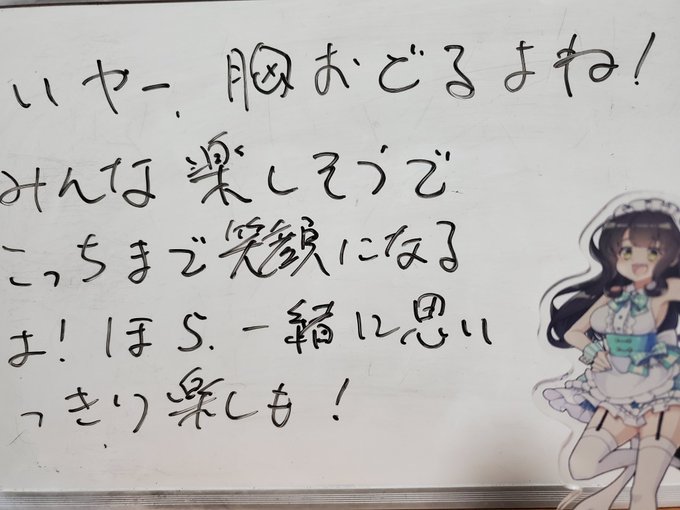 いやー、胸おどるよね!
みんな楽しそうで
こっちまで笑顔になる
よ!ほら、一緒に思い
っきり楽しも!